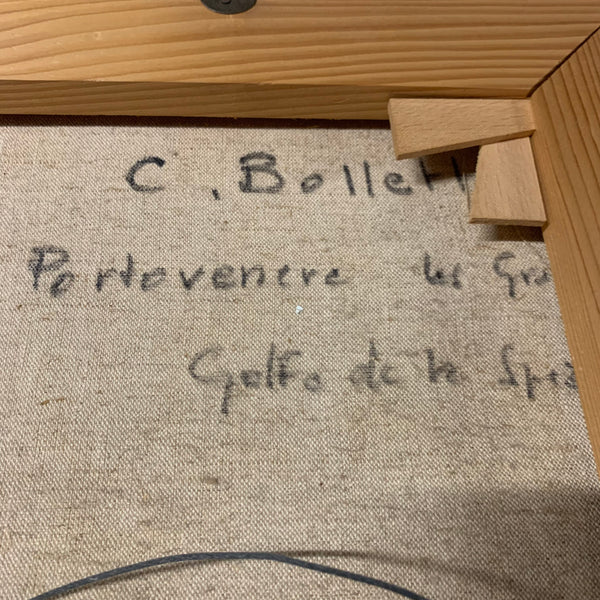 C. Bollett
Portovenere les Gro
Golfo de la Spez